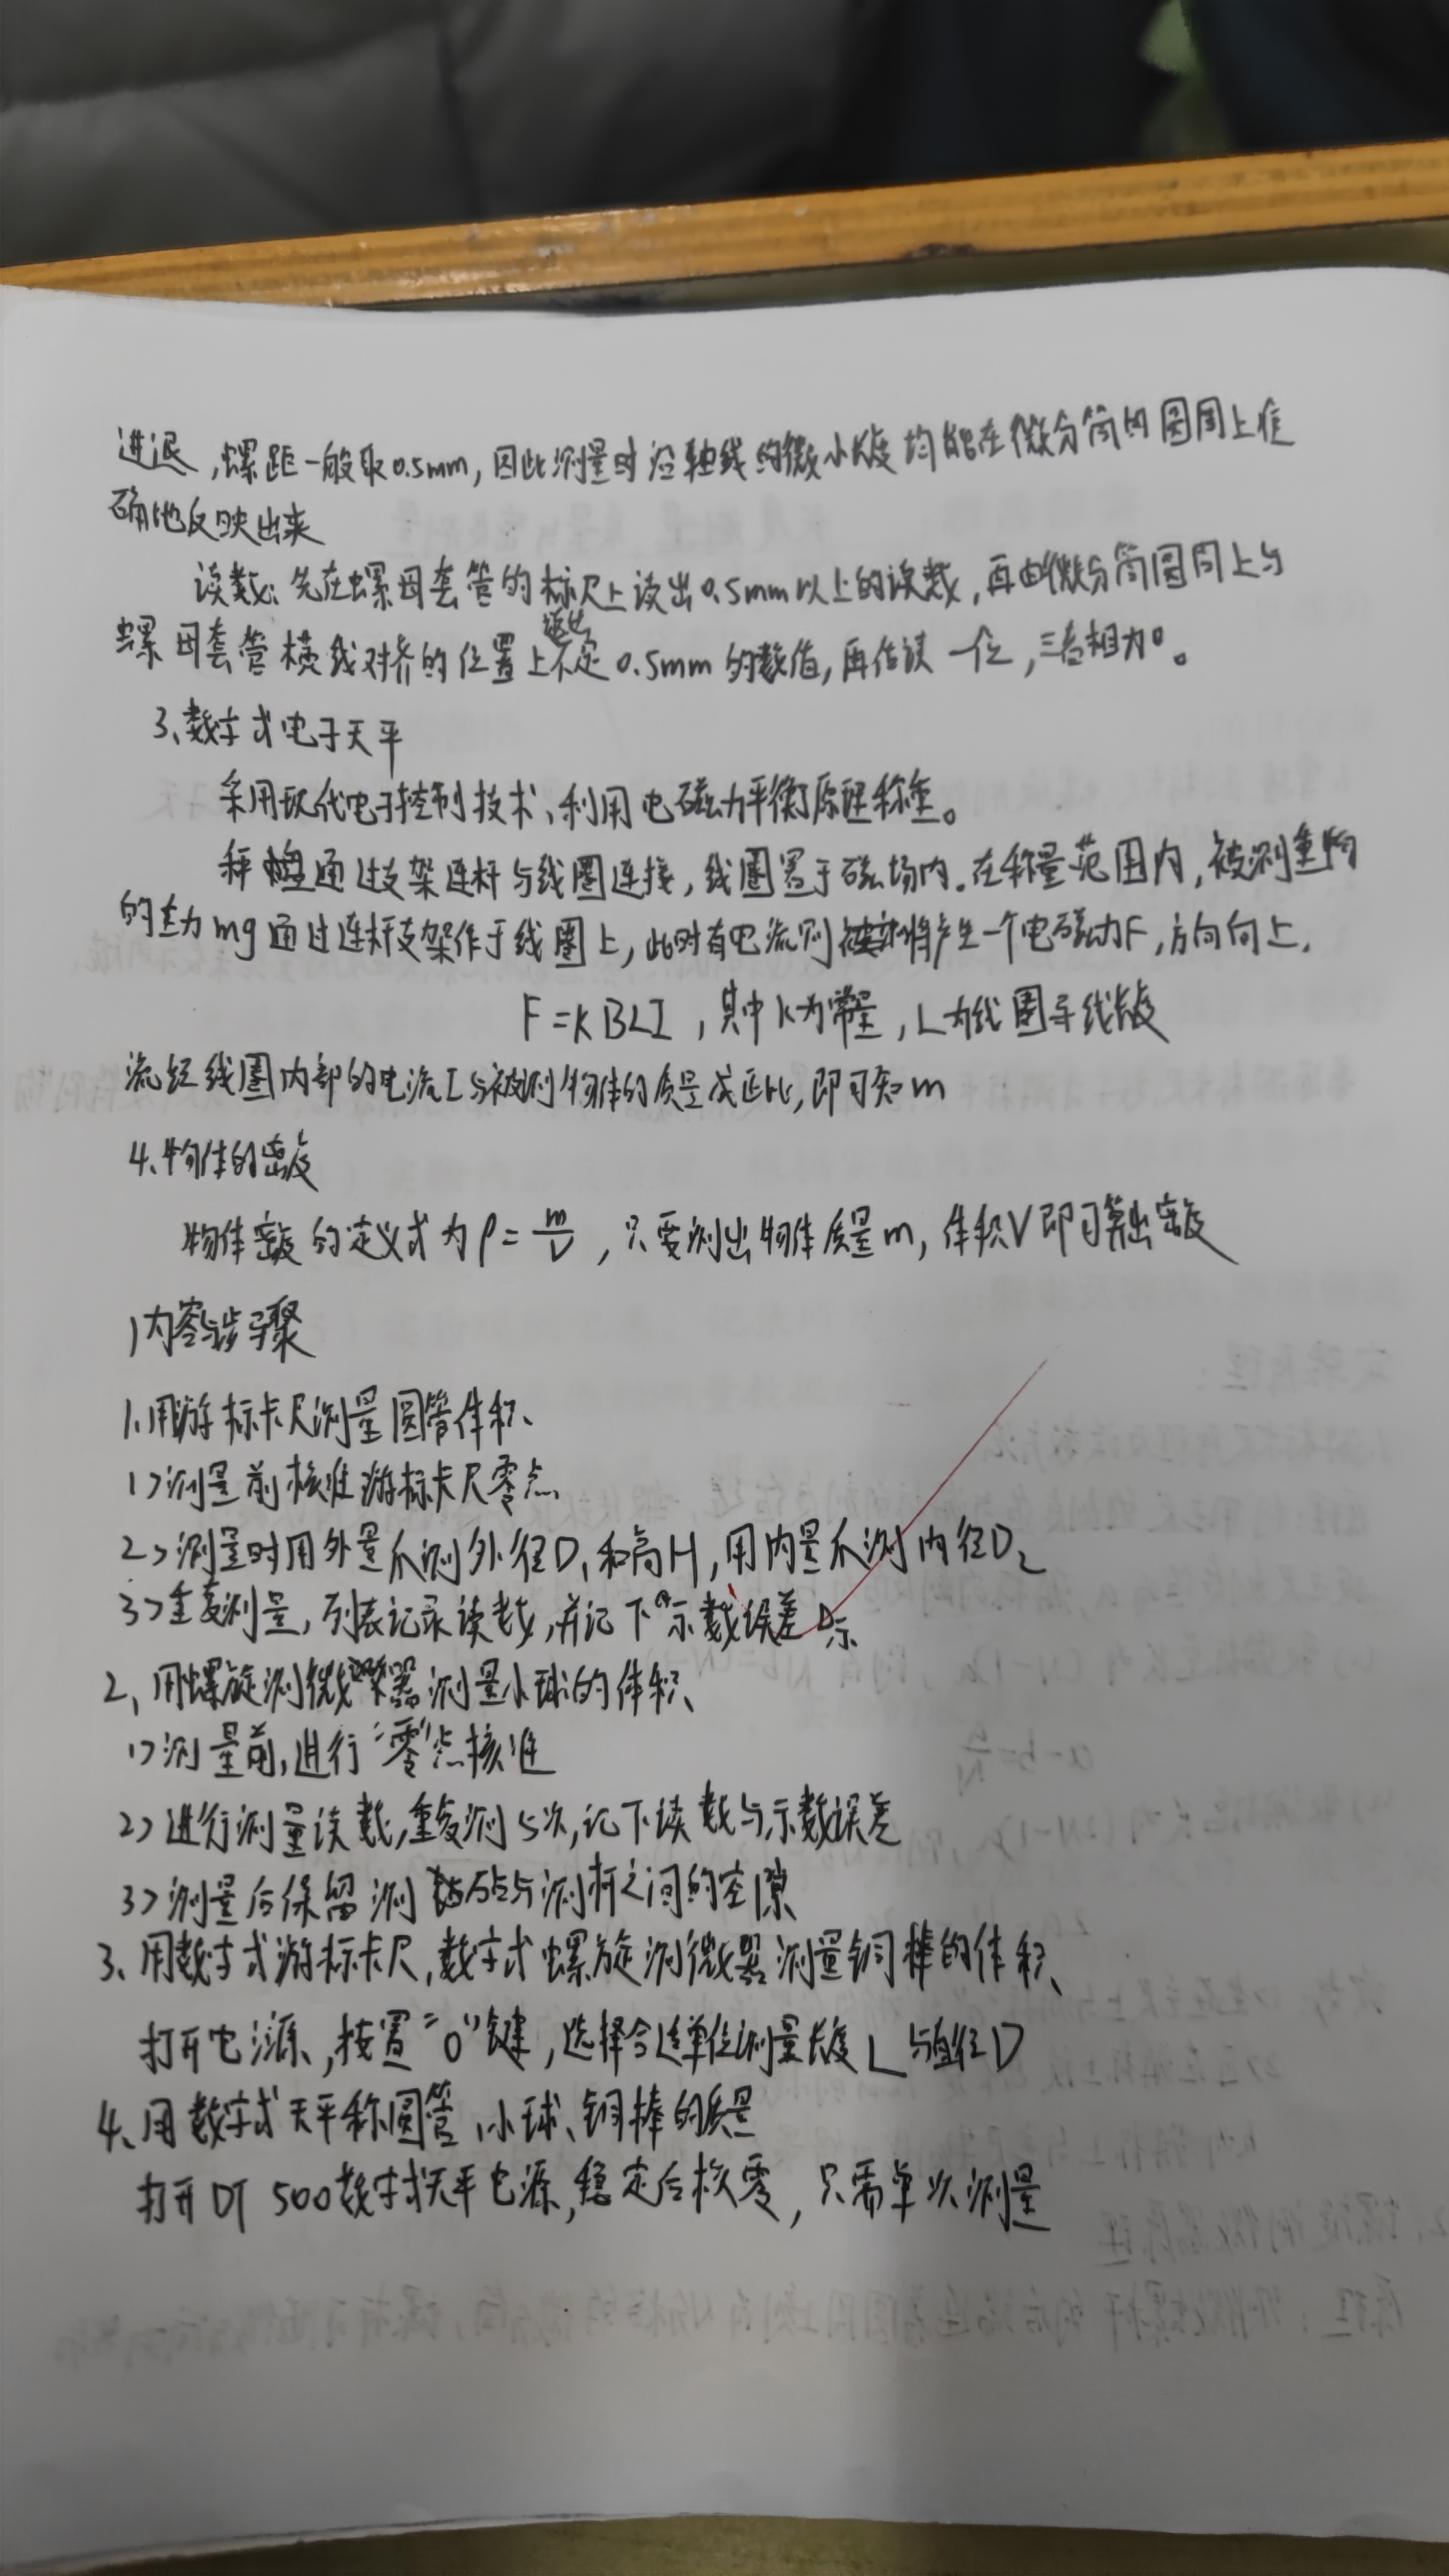 进退,螺距一般取0.5mm,因此测量时沿轴线的微小长度均能在微分筒的圆周上准
确地反映出来
读数:先在螺母套管的标尺上读出0.5mm以上的读数,再由微分筒圆周上与
螺母套管横线对齐的位置上读出不足0.5mm的数值,再估读一位,三者相加。
3、数字式电子天平
采用现代电子控制技术、利用电磁力平衡原理称重。
秤盘通过支架连杆与线圈连接,线圈置于磁场内。在称量范围内,被测重物
的重力mg通过连杆支架作于线圈上,此时有电流则将产生一个电磁力F,方向向上,
F=KBLI,其中K为常量,L为线圈导线长度
流经线圈内部的电流I与被测物体的质量成正比,即可知m
4、物体的密度
物体密度的定义式为ρ=m/V,只要测出物体质量m,体积V即可算出密度
内容与步骤
1、用游标卡尺测量圆管体积、
1>测量前核准游标卡尺零点
2>测量时用外量爪测外径D₁和高H,用内量爪测内径D₂
3>重复测量,列表记录读数,并记下示数误差
2、用螺旋测微器测量小球的体积、
1>测量前,进行“零”点核准
2>进行测量读数,重复测5次,记下读数与示数误差
3>测量后保留测砧与测杆之间的空隙
3、用数字式游标卡尺,数字式螺旋测微器测量铜棒的体积、
打开电源,按置“0”键,选择合适单位测量长度L与直径D
4、用数字式天平称圆管、小球、铜棒的质量
打开DT 500数字式天平电源,稳定后校零,只需单次测量